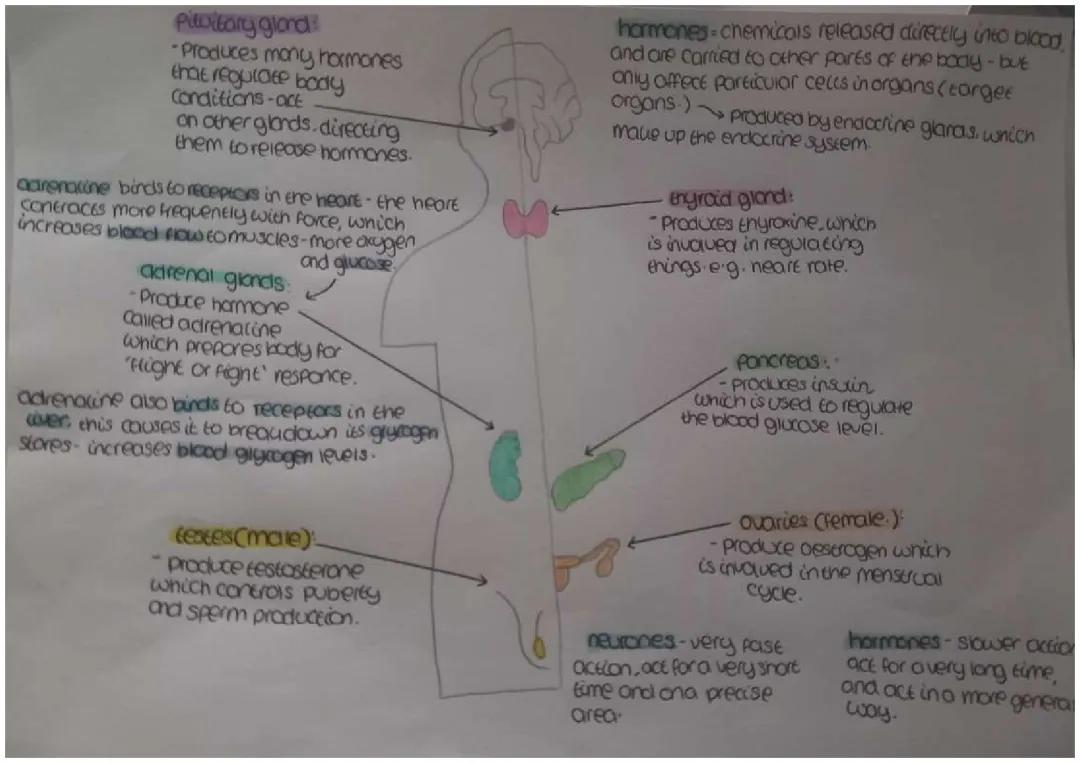 Pituitary gland:
- Produces many hormones
that regulate body
conditions - act
on other glands, directing
them to release hormones.
hormones = chemicals released directly into blood,
and are carried to other parts of the body - but
only affect particular cells in organs (target
organs.) → Produced by endocrine glands, which
make up the endocrine system.
adrenaline binds to receptors in the heart - the heart
contracts more frequently with force, which
increases blood flow to muscles - more oxygen
and glucose.
thyroid gland:
- Produces thyroxine, which
is involved in regulating
things. e.g. heart rate.
adrenal glands:
- Produce hormone
called adrenaline
which prepares body for
'flight or fight' responce.
pancreas:
- produces insulin
which is used to regulate
the blood glucose level.
adrenaline also binds to receptors in the
liver, this causes it to breakdown its glycogen
stores - increases blood glycogen levels.
testes (male):
- Produce testosterone
which controls puberty
and sperm production.
ovaries (female.):
- produce oestrogen which
is involved in the menstrual
cycle.
neurones - very fast
action, act for a very short
time and on a precise
area.
hormones - slower action
act for a very long time,
and act in a more general
way.